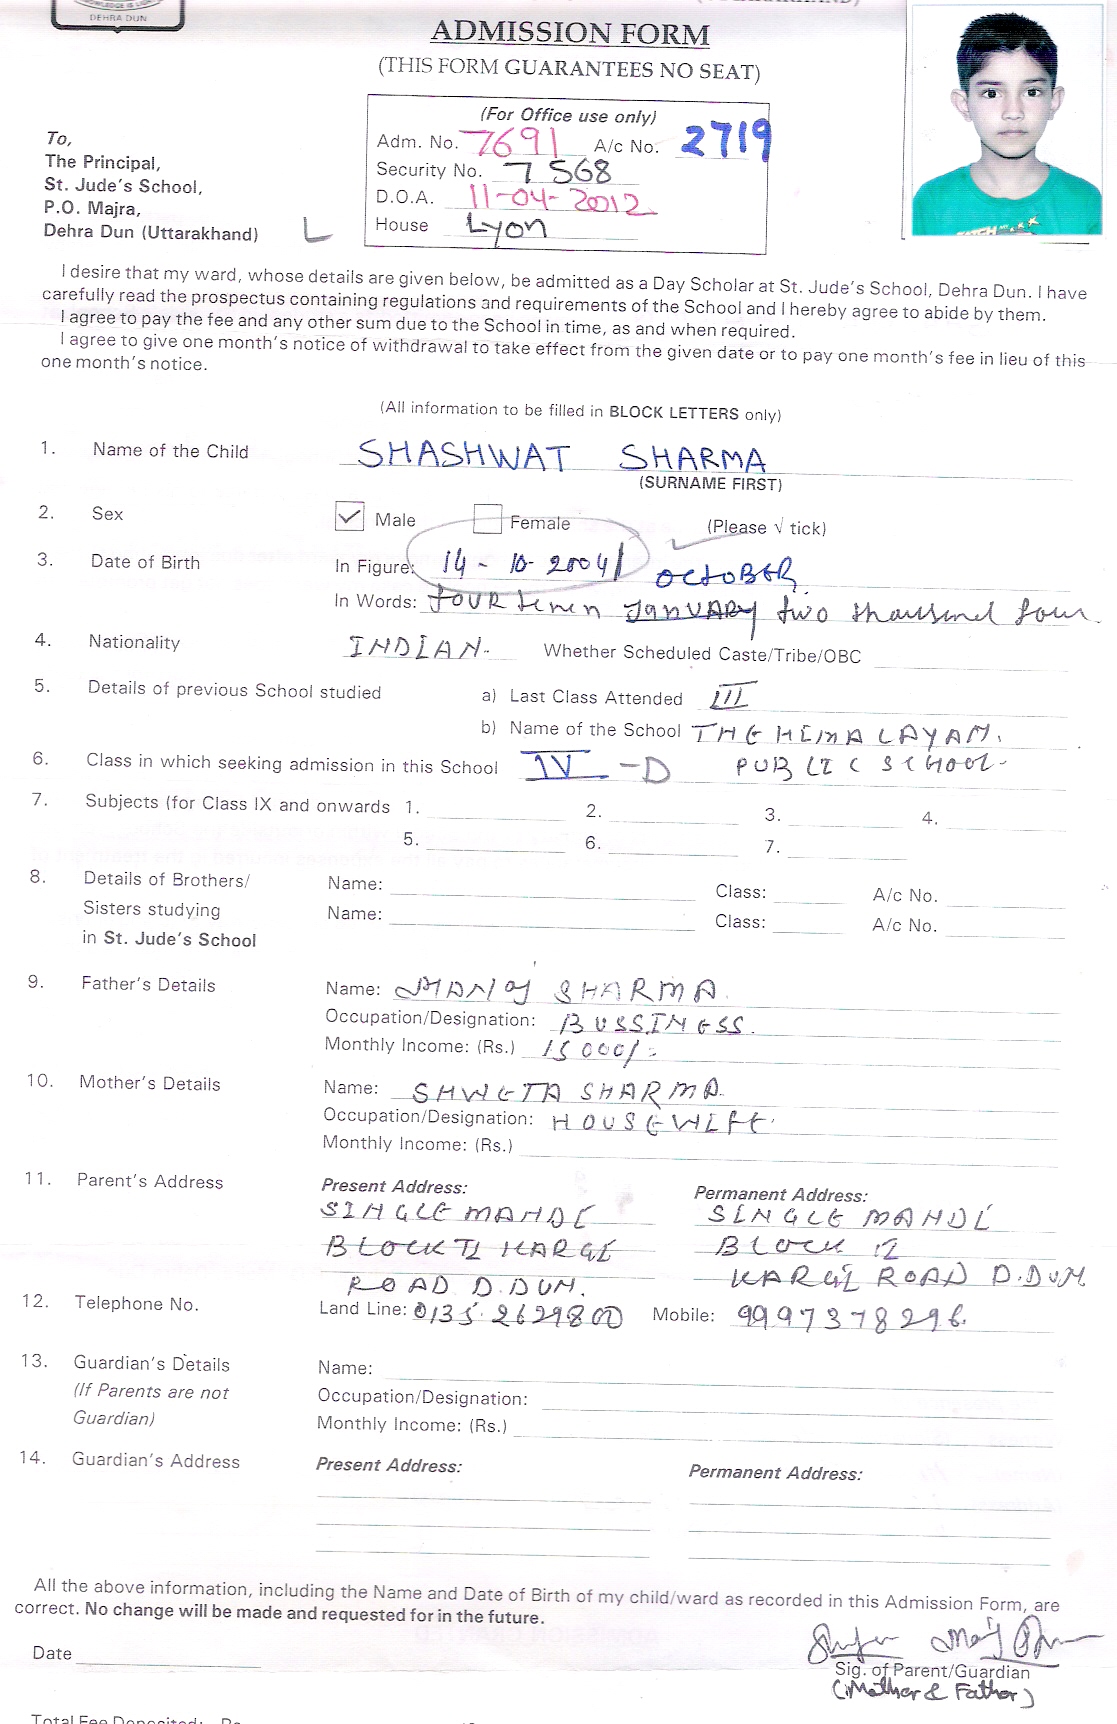 DEHRA DUN
ADMISSION FORM
(THIS FORM GUARANTEES NO SEAT)
(For Office use only)
Adm. No. 7691 A/c No. 2719
Security No. 7568
D.O.A. 11-04-2012
House Lyon
To,
The Principal,
St. Jude's School,
P.O. Majra,
Dehra Dun (Uttarakhand)
L
I desire that my ward, whose details are given below, be admitted as a Day Scholar at St. Jude's School, Dehra Dun. I have
carefully read the prospectus containing regulations and requirements of the School and I hereby agree to abide by them.
I agree to pay the fee and any other sum due to the School in time, as and when required.
I agree to give one month's notice of withdrawal to take effect from the given date or to pay one month's fee in lieu of this
one month's notice.
(All information to be filled in BLOCK LETTERS only)
1. Name of the Child SHASHWAT SHARMA
(SURNAME FIRST)
2. Sex Male Female (Please √ tick)
3. Date of Birth In Figure: 14-10-2004/ OCTOBER
In Words: FOURteen JANUARY two thousand four
4. Nationality INDIAN. Whether Scheduled Caste/Tribe/OBC
5. Details of previous School studied a) Last Class Attended III
b) Name of the School THE HIMALAYAN.
6. Class in which seeking admission in this School IV-D PUBLIC SCHOOL-
7. Subjects (for Class IX and onwards 1. 2. 3. 4.
5. 6. 7.
8. Details of Brothers/ Name: Class: A/c No.
Sisters studying Name: Class: A/c No.
in St. Jude's School
9. Father's Details Name: MANOJ SHARMA
Occupation/Designation: BUSSINESS.
Monthly Income: (Rs.) 15000/-
10. Mother's Details Name: SHWETA SHARMA
Occupation/Designation: HOUSEWIFE.
Monthly Income: (Rs.)
11. Parent's Address Present Address: Permanent Address:
SINGLE MANDI SINGLE MANDI
BLOCK II KARGI BLOCK 12
ROAD D.DUN. KARGI ROAD D.DUN
12. Telephone No. Land Line: 0135 2629800 Mobile: 9997378296.
13. Guardian's Details Name:
(If Parents are not Occupation/Designation:
Guardian) Monthly Income: (Rs.)
14. Guardian's Address Present Address: Permanent Address:
All the above information, including the Name and Date of Birth of my child/ward as recorded in this Admission Form, are
correct. No change will be made and requested for in the future.
Date
Sig. of Parent/Guardian
(Mother & Father)